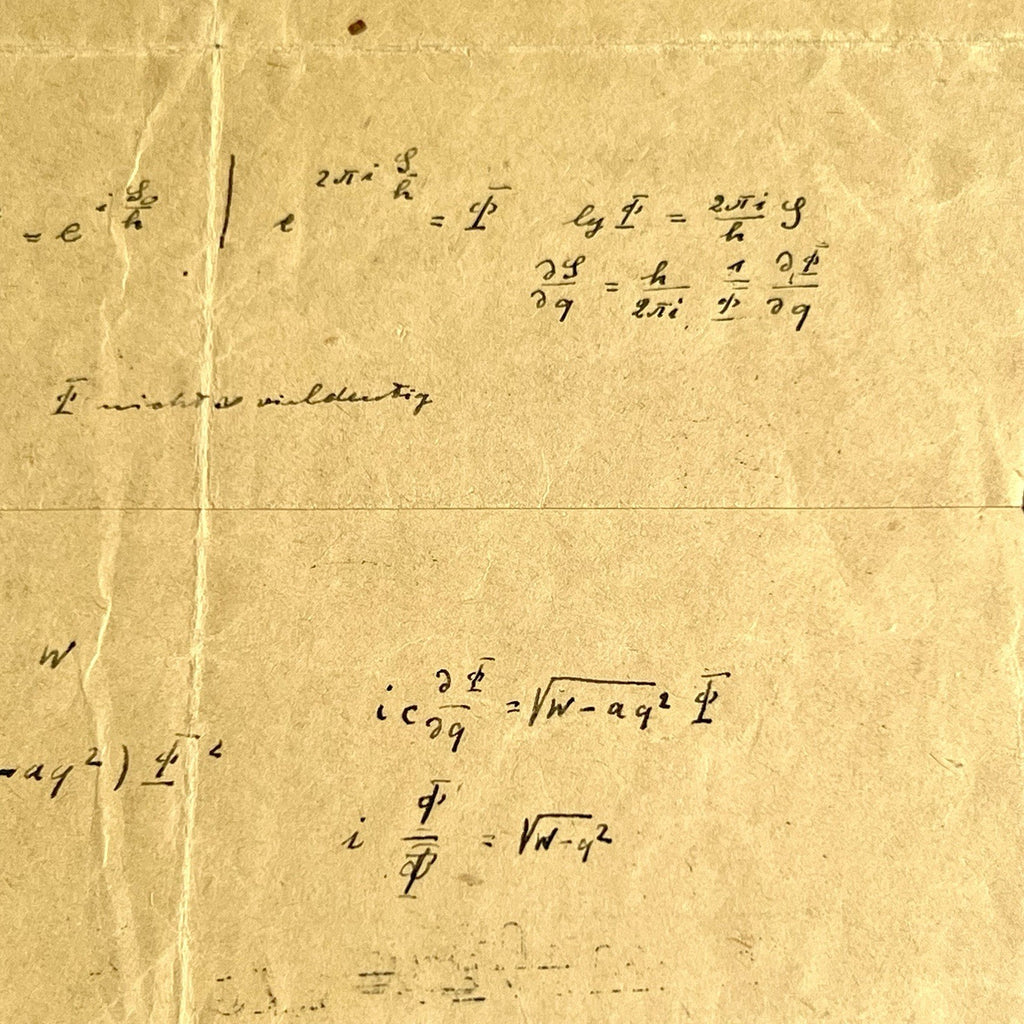 = e^{i S_0/h} | e^{2πi S/h} = Φ lg Φ = 2πi/h S
∂S/∂q = h/2πi 1/Φ ∂Φ/∂q
Φ nicht vieldeutig
W
i c ∂Φ/∂q = √(W - aq²) Φ
- aq²) Φ²
i Φ/Φ = √(W - q²)